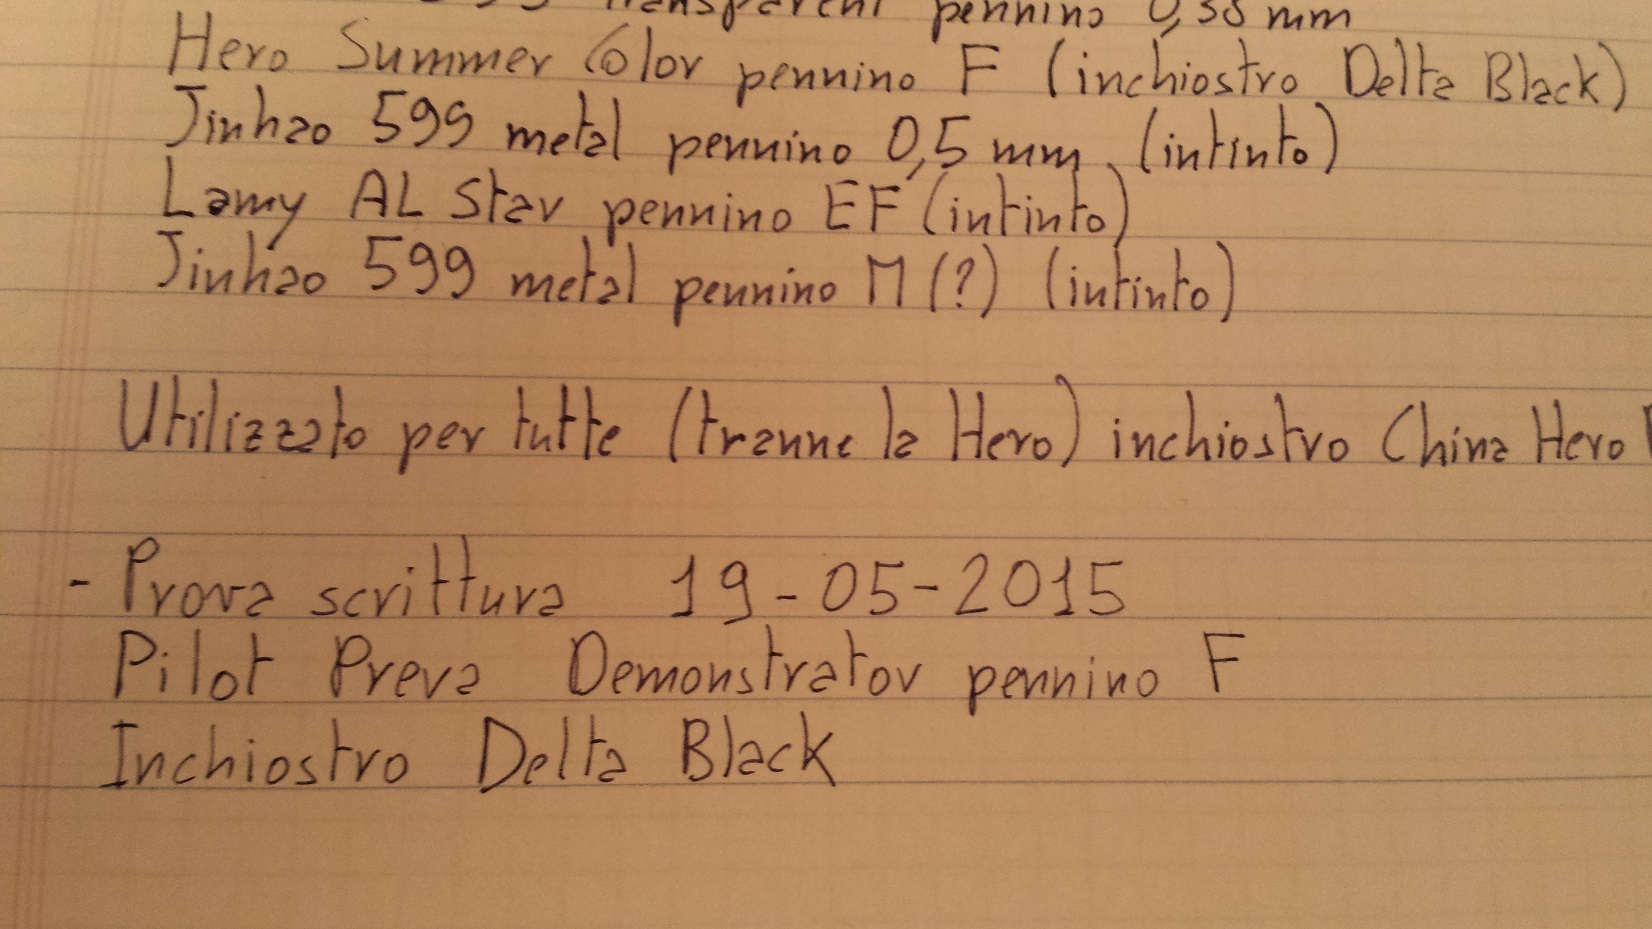 Transparent pennino 0,38 mm
Hero Summer Color pennino F (inchiostro Delta Black)
Jinhao 599 metal pennino 0,5 mm. (intinto)
Lamy AL Star pennino EF (intinto)
Jinhao 599 metal pennino M (?) (intinto)
Utilizzato per tutte (tranne la Hero) inchiostro China Hero
- Prova scrittura 19-05-2015
Pilot Prera Demonstrator pennino F
Inchiostro Delta Black